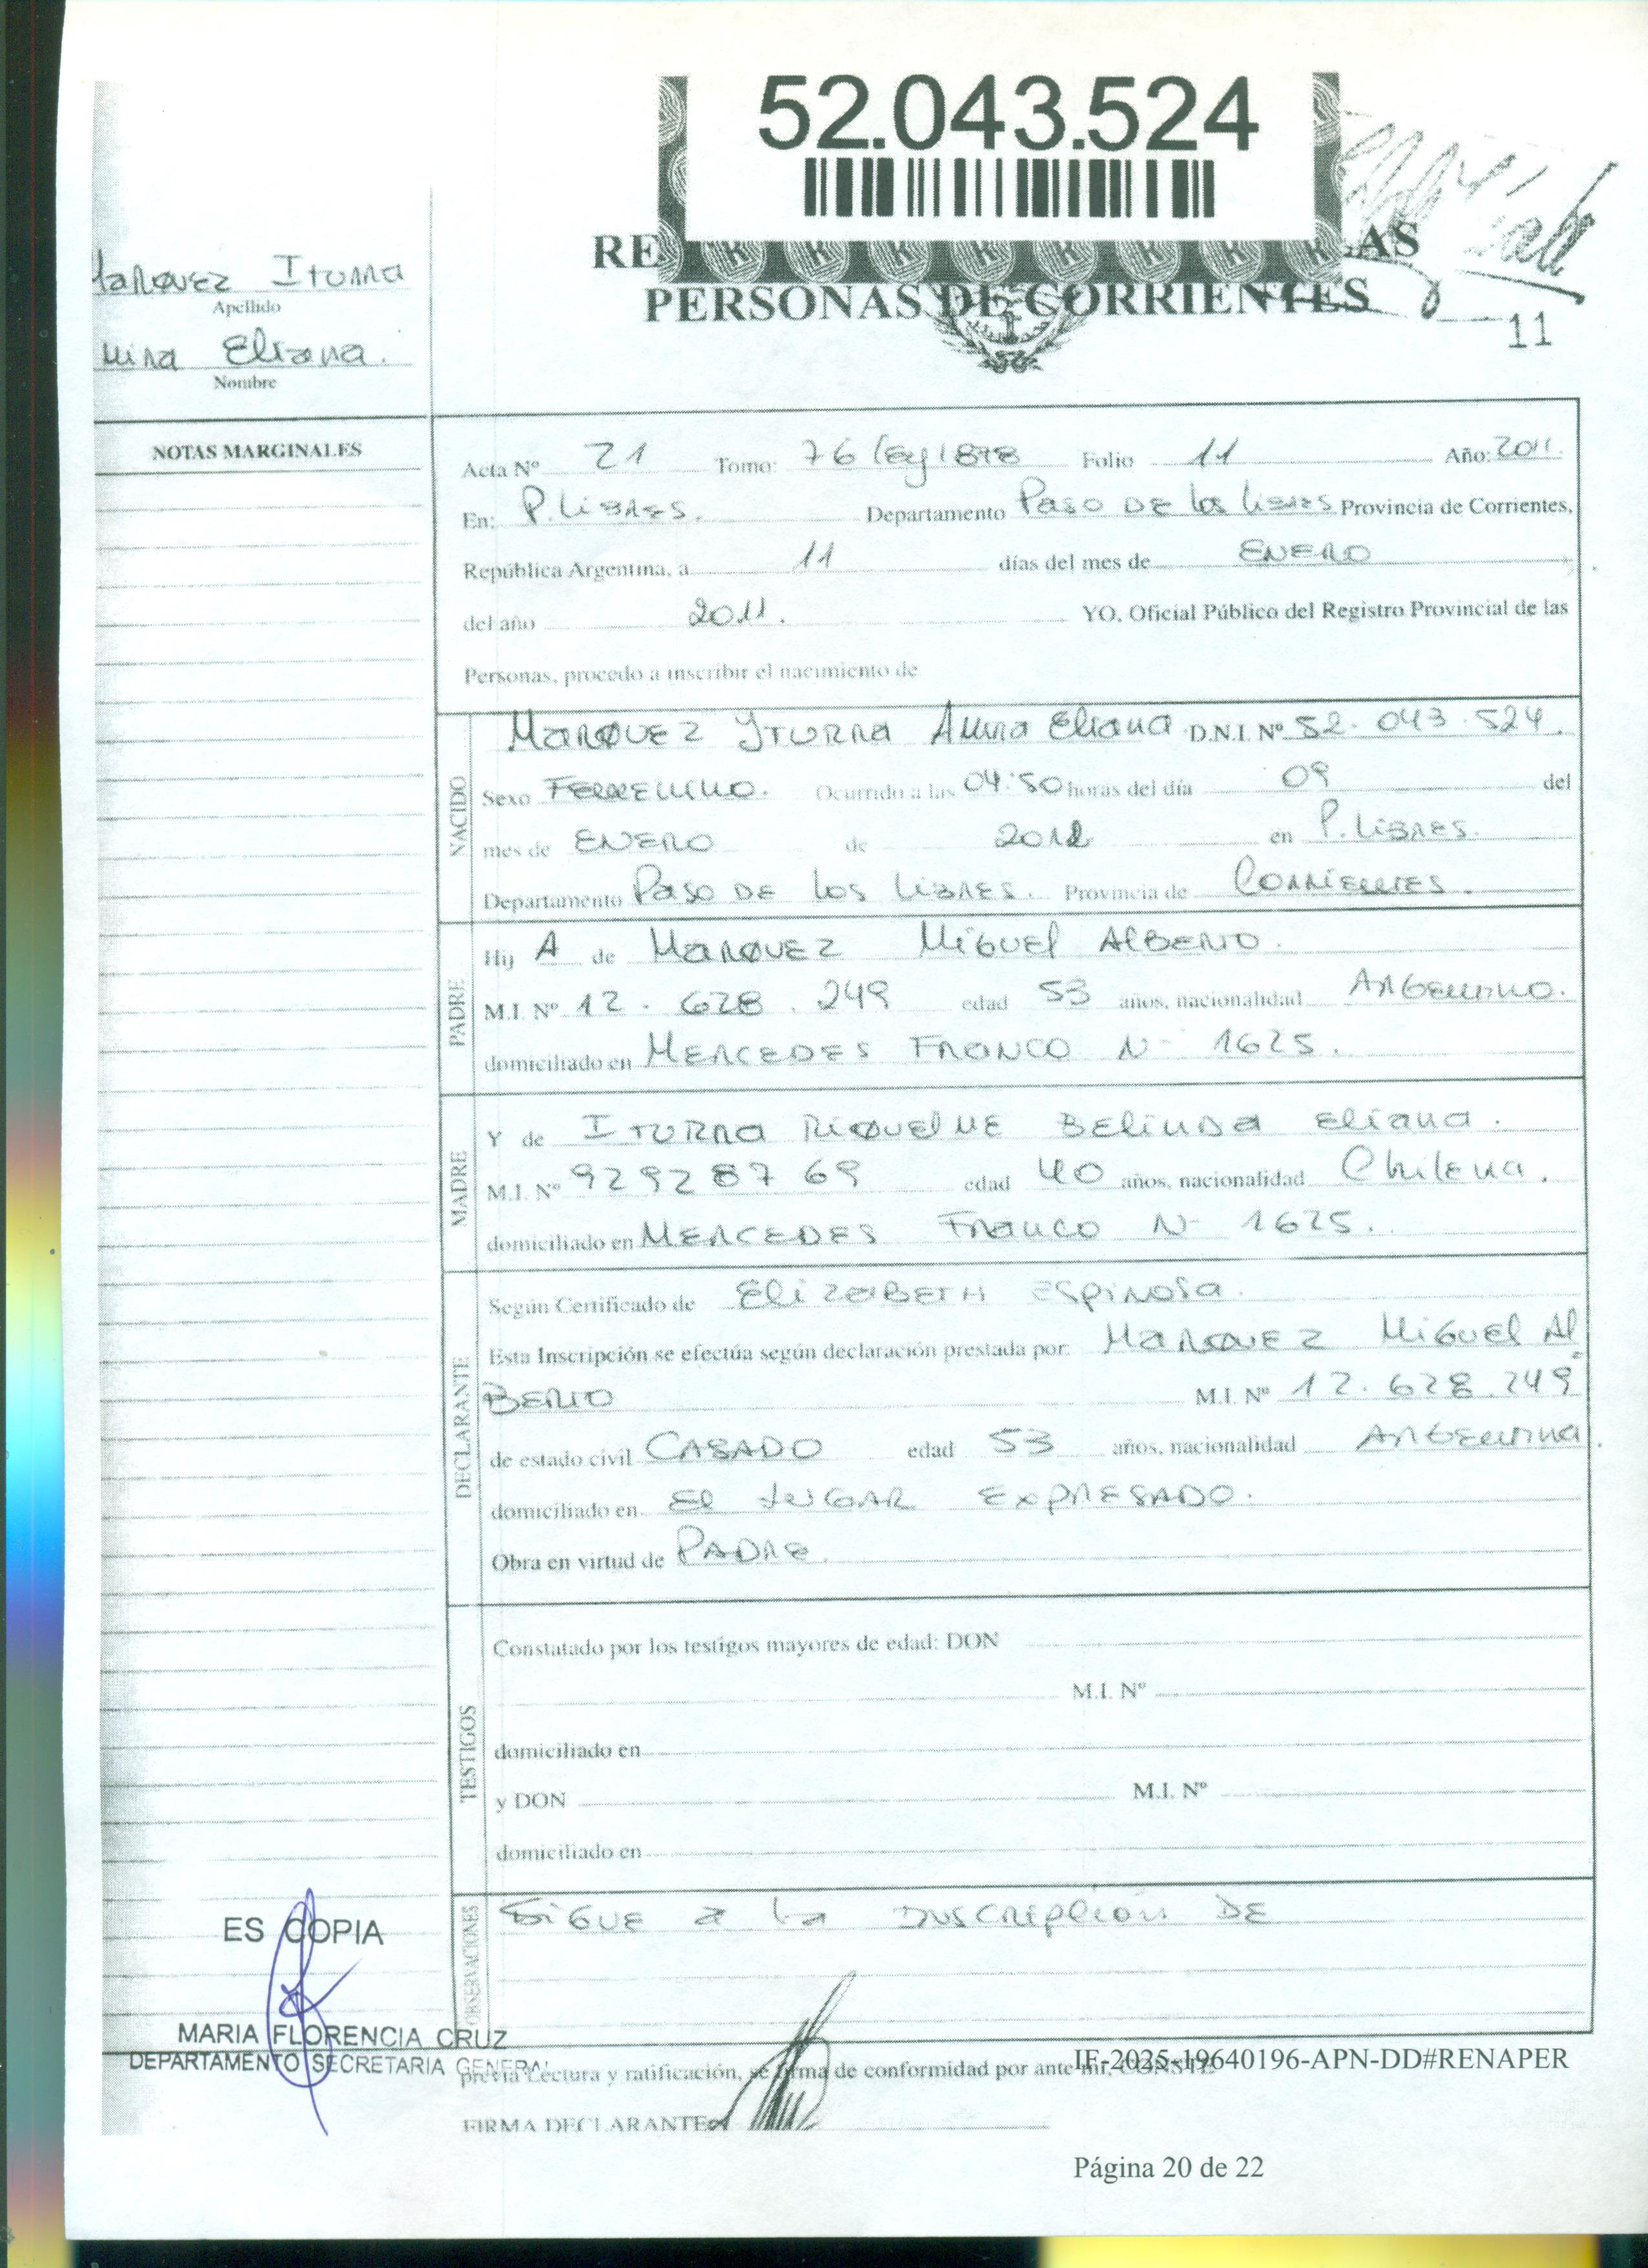 52.043.524
RE AS
PERSONAS DE CORRIENTES
11
Marquez Iturra
Apellido
Eliana.
Nombre
NOTAS MARGINALES
Acta Nº 21 Tomo: 76 Ley 1878 Folio 11 Año: 2011.
En: P. Libres. Departamento Paso de los Libres Provincia de Corrientes,
República Argentina, a 11 días del mes de ENERO
del año 2011. YO, Oficial Público del Registro Provincial de las
Personas, procedo a inscribir el nacimiento de
NACIDO
Marquez Yturra Eliana D.N.I. Nº 52.043.524.
Sexo Femenino. Ocurrido a las 04:50 horas del día 09 del
mes de ENERO de en P. Libres.
Departamento Paso de los Libres. Provincia de Corrientes.
PADRE
Hij A de Marquez Miguel Alberto.
M.I. Nº 12.628.249 edad 53 años, nacionalidad Argentino.
domiciliado en Mercedes Franco N- 1625.
MADRE
Y de Iturra Riquelme Belinda Eliana.
M.I. Nº 92928769 edad 40 años, nacionalidad Chilena.
domiciliado en Mercedes Franco N- 1625.
DECLARANTE
Según Certificado de Elizabeth Espinosa.
Esta Inscripción se efectúa según declaración prestada por: Marquez Miguel Al
Berto M.I. Nº 12.628.249
de estado civil CASADO edad 53 años, nacionalidad Argentina.
domiciliado en El lugar expresado.
Obra en virtud de Padre.
TESTIGOS
Constatado por los testigos mayores de edad: DON
M.I. Nº
domiciliado en
y DON M.I. Nº
domiciliado en
OBSERVACIONES
Sigue a la Inscripcion DE
ES COPIA
MARIA FLORENCIA CRUZ
DEPARTAMENTO SECRETARIA GENERAL
previa Lectura y ratificación, se firma de conformidad por ante mi, CONSTE
IF-2025-19640196-APN-DD#RENAPER
FIRMA DECLARANTE
Página 20 de 22